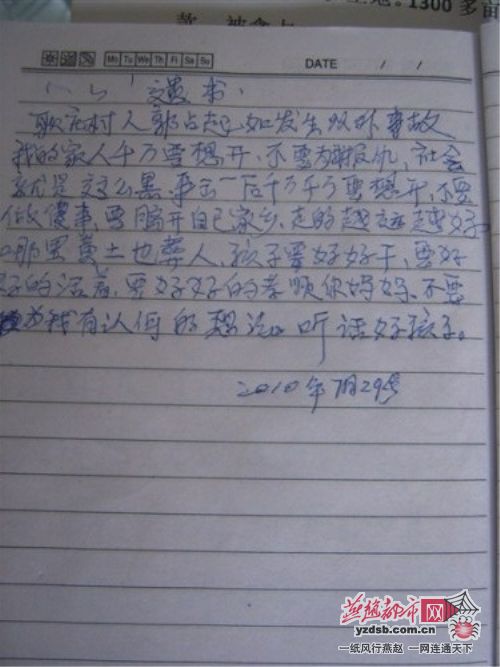 土地。1300多亩
款，被拿上
DATE / /
Mo Tu We Th Fr Sa Su
遗书
耿庄村人郭占起如发生以外事故
我的家人千万要想开、不要为我报仇、社会
就是这么黑、事后千万千万要想开、不要
做傻事、要脶开自己家乡、走的越远越好
哪里黄土也葬人、孩子要好好干、要好
好的活着、要好好的孝顺你妈妈、不要
为我有认何的想法、听话好孩子。
2010年7月29号
燕赵都市网
yzdsb.com.cn
一纸风行燕赵 一网连通天下